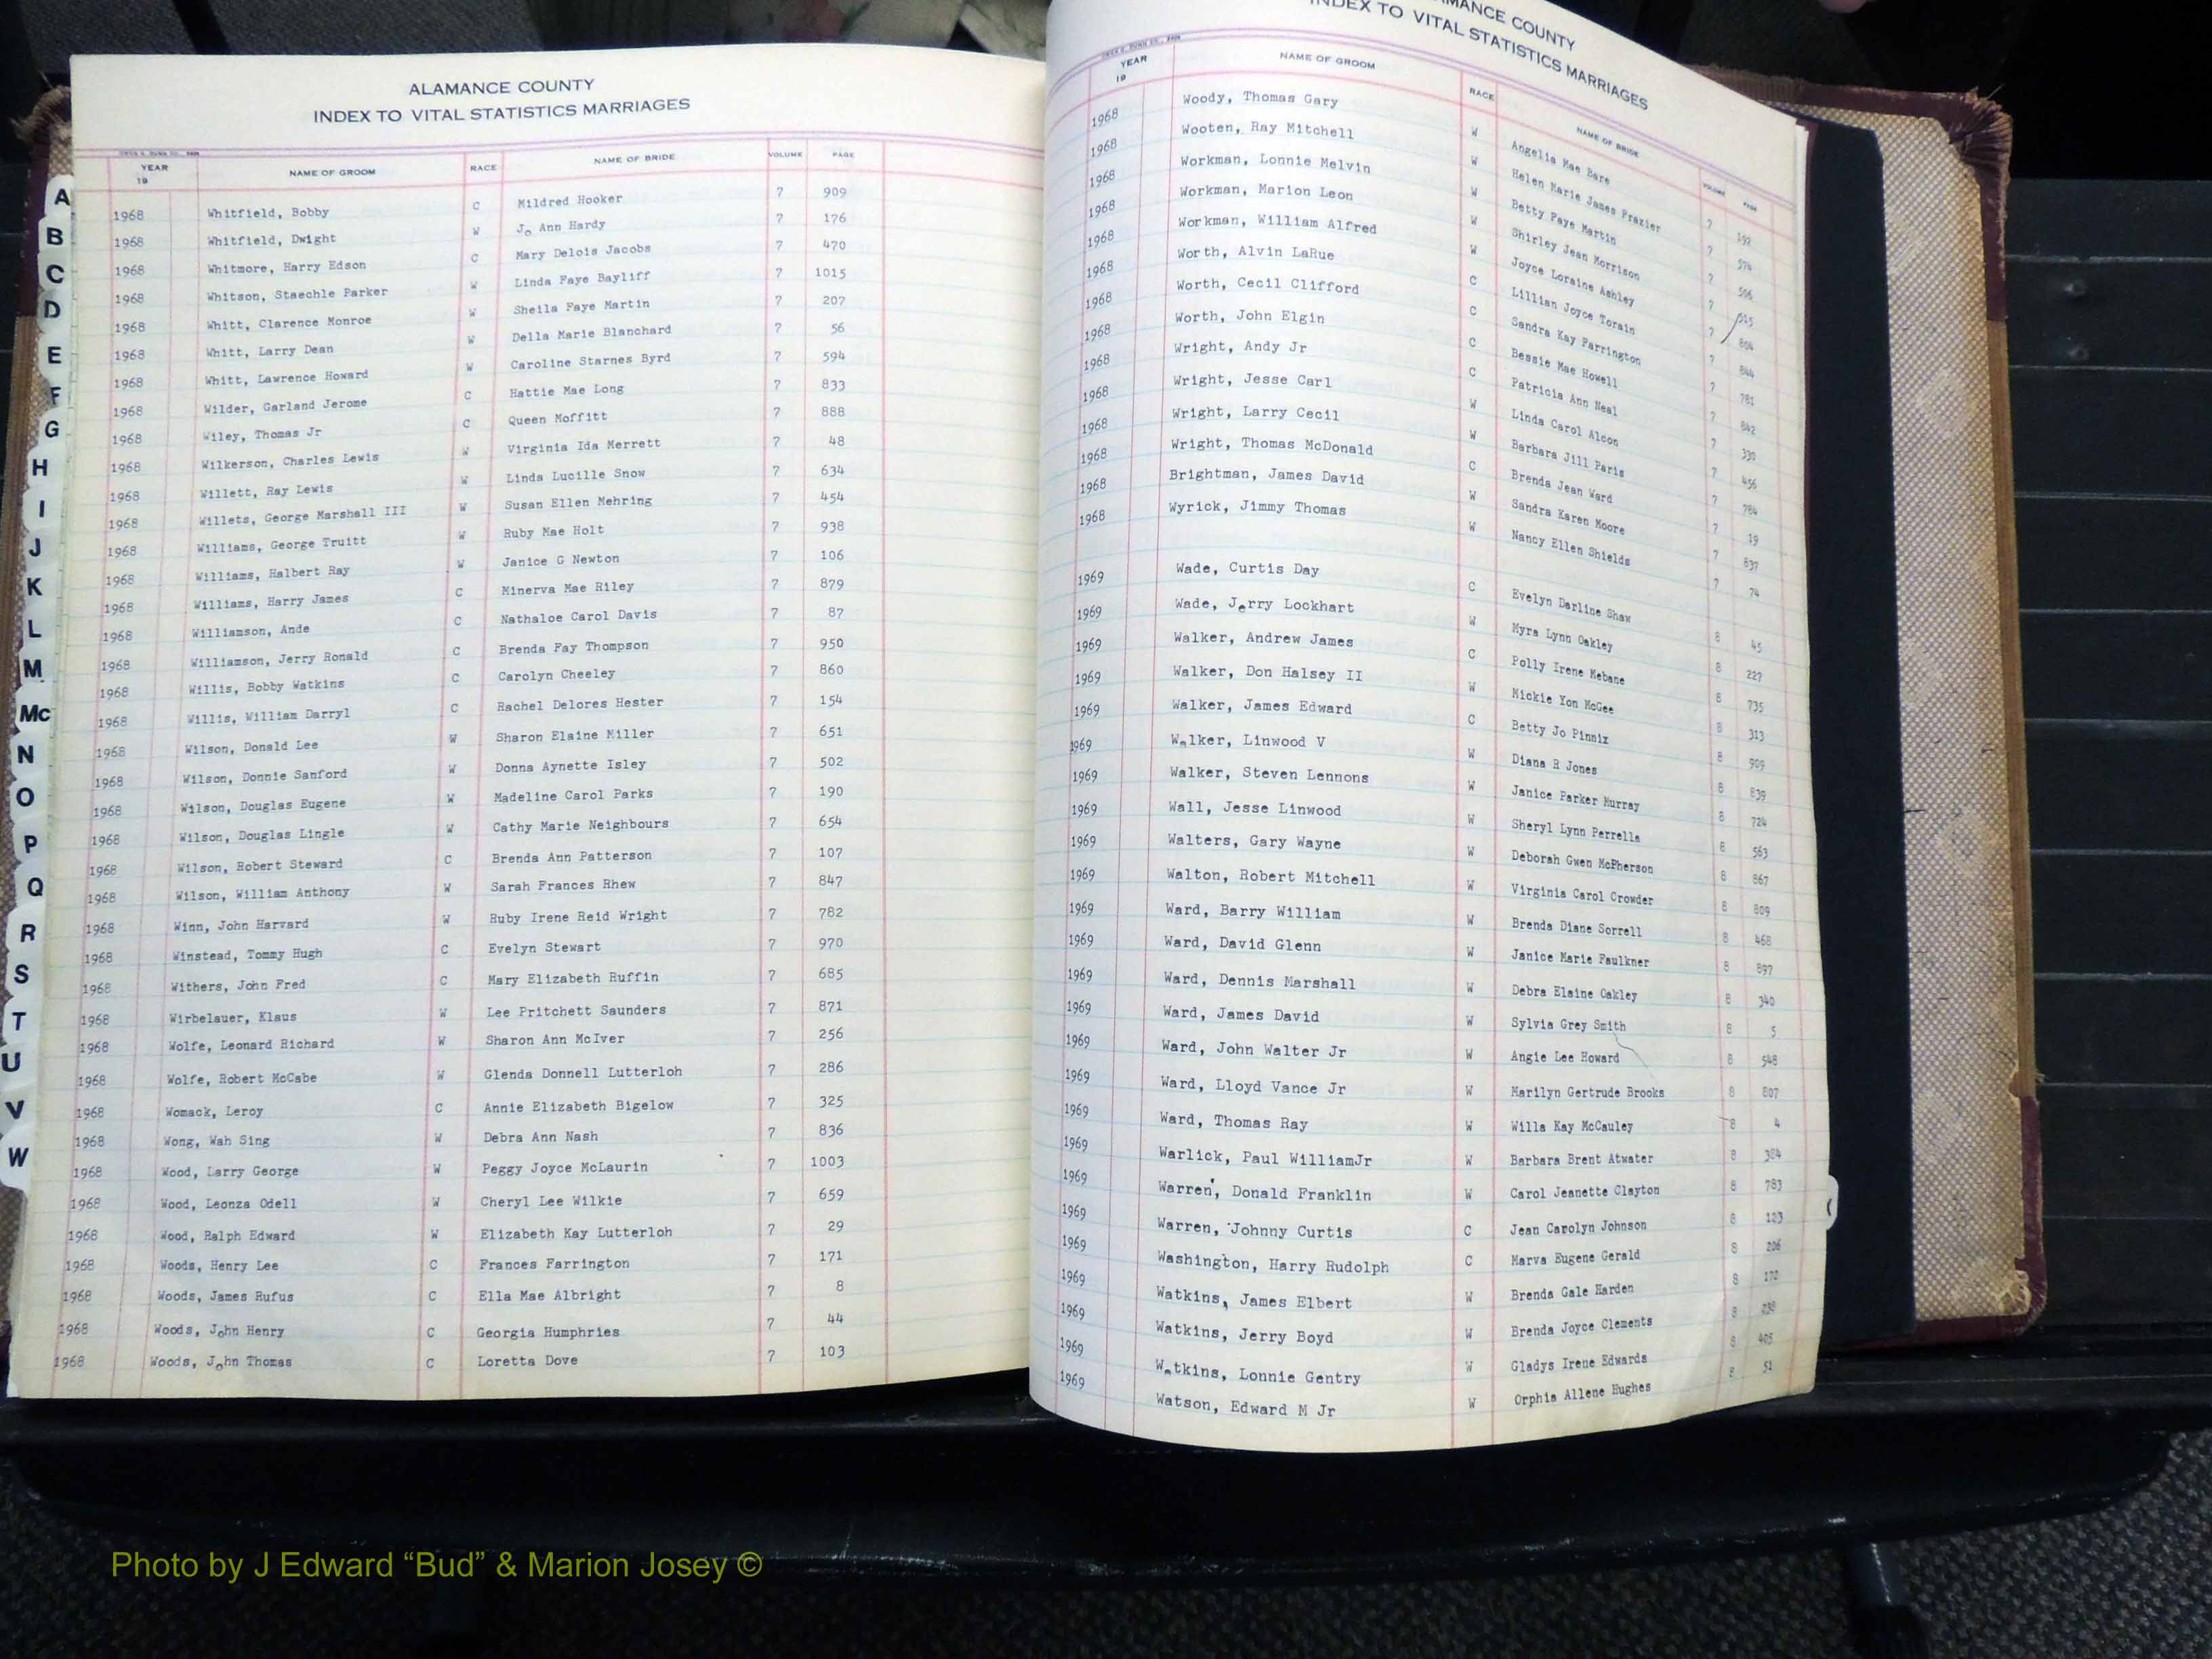 ALAMANCE COUNTY
INDEX TO VITAL STATISTICS MARRIAGES
YEAR 19 NAME OF GROOM RACE NAME OF BRIDE VOLUME PAGE
1968 Whitfield, Bobby C Mildred Hooker 7 909
1968 Whitfield, Dwight W Jo Ann Hardy 7 176
1968 Whitmore, Harry Edson C Mary Delois Jacobs 7 470
1968 Whitson, Staechle Parker W Linda Faye Bayliff 7 1015
1968 Whitt, Clarence Monroe W Sheila Faye Martin 7 207
1968 Whitt, Larry Dean W Della Marie Blanchard 7 56
1968 Whitt, Lawrence Howard W Caroline Starnes Byrd 7 594
1968 Wilder, Garland Jerome C Hattie Mae Long 7 833
1968 Wiley, Thomas Jr C Queen Moffitt 7 888
1968 Wilkerson, Charles Lewis W Virginia Ida Merrett 7 48
1968 Willett, Ray Lewis W Linda Lucille Snow 7 634
1968 Willets, George Marshall III W Susan Ellen Mehring 7 454
1968 Williams, George Truitt W Ruby Mae Holt 7 938
1968 Williams, Halbert Ray W Janice G Newton 7 106
1968 Williams, Harry James C Minerva Mae Riley 7 879
1968 Williamson, Ande C Nathaloe Carol Davis 7 87
1968 Williamson, Jerry Ronald C Brenda Fay Thompson 7 950
1968 Willis, Bobby Watkins C Carolyn Cheeley 7 860
1968 Willis, William Darryl C Rachel Delores Hester 7 154
1968 Wilson, Donald Lee W Sharon Elaine Miller 7 651
1968 Wilson, Donnie Sanford W Donna Aynette Isley 7 502
1968 Wilson, Douglas Eugene W Madeline Carol Parks 7 190
1968 Wilson, Douglas Lingle W Cathy Marie Neighbours 7 654
1968 Wilson, Robert Steward C Brenda Ann Patterson 7 107
1968 Wilson, William Anthony W Sarah Frances Rhew 7 847
1968 Winn, John Harvard W Ruby Irene Reid Wright 7 782
1968 Winstead, Tommy Hugh C Evelyn Stewart 7 970
1968 Withers, John Fred C Mary Elizabeth Ruffin 7 685
1968 Wirbelauer, Klaus W Lee Pritchett Saunders 7 871
1968 Wolfe, Leonard Richard W Sharon Ann McIver 7 256
1968 Wolfe, Robert McCabe W Glenda Donnell Lutterloh 7 286
1968 Womack, Leroy C Annie Elizabeth Bigelow 7 325
1968 Wong, Wah Sing W Debra Ann Nash 7 836
1968 Wood, Larry George W Peggy Joyce McLaurin 7 1003
1968 Wood, Leonza Odell W Cheryl Lee Wilkie 7 659
1968 Wood, Ralph Edward W Elizabeth Kay Lutterloh 7 29
1968 Woods, Henry Lee C Frances Farrington 7 171
1968 Woods, James Rufus C Ella Mae Albright 7 8
1968 Woods, John Henry C Georgia Humphries 7 44
1968 Woods, John Thomas C Loretta Dove 7 103
A
B
C
D
E
F
G
H
I
J
K
L
M
Mc
N
O
P
Q
R
S
T
U
V
W
AMANCE COUNTY
INDEX TO VITAL STATISTICS MARRIAGES
YEAR 19 NAME OF GROOM RACE NAME OF BRIDE VOLUME PAGE
1968 Woody, Thomas Gary W Angelia Mae Bare 7 192
1968 Wooten, Ray Mitchell W Helen Marie James Frazier 7 574
1968 Workman, Lonnie Melvin W Betty Faye Martin 7 506
1968 Workman, Marion Leon W Shirley Jean Morrison 7 515
1968 Workman, William Alfred W Joyce Loraine Ashley 7 804
1968 Worth, Alvin LaRue C Lillian Joyce Torain 7 844
1968 Worth, Cecil Clifford C Sandra Kay Farrington 7 781
1968 Worth, John Elgin C Bessie Mae Howell 7 842
1968 Wright, Andy Jr C Patricia Ann Neal 7 330
1968 Wright, Jesse Carl W Linda Carol Alcon 7 456
1968 Wright, Larry Cecil W Barbara Jill Paris 7 784
1968 Wright, Thomas McDonald C Brenda Jean Ward 7 19
1968 Brightman, James David W Sandra Karen Moore 7 837
1968 Wyrick, Jimmy Thomas W Nancy Ellen Shields 7 74
1969 Wade, Curtis Day C Evelyn Darline Shaw 8 45
1969 Wade, Jerry Lockhart W Myra Lynn Oakley 8 227
1969 Walker, Andrew James C Polly Irene Mebane 8 735
1969 Walker, Don Halsey II W Mickie Yon McGee 8 313
1969 Walker, James Edward C Betty Jo Pinnix 8 909
1969 Walker, Linwood V W Diana R Jones 8 839
1969 Walker, Steven Lennons W Janice Parker Murray 8 724
1969 Wall, Jesse Linwood W Sheryl Lynn Perrella 8 563
1969 Walters, Gary Wayne W Deborah Gwen McPherson 8 867
1969 Walton, Robert Mitchell W Virginia Carol Crowder 8 809
1969 Ward, Barry William W Brenda Diane Sorrell 8 468
1969 Ward, David Glenn W Janice Marie Faulkner 8 897
1969 Ward, Dennis Marshall W Debra Elaine Oakley 8 340
1969 Ward, James David W Sylvia Grey Smith 8 5
1969 Ward, John Walter Jr W Angie Lee Howard 8 548
1969 Ward, Lloyd Vance Jr W Marilyn Gertrude Brooks 8 807
1969 Ward, Thomas Ray W Willa Kay McCauley 8 4
1969 Warlick, Paul WilliamJr W Barbara Brent Atwater 8 384
1969 Warren, Donald Franklin W Carol Jeanette Clayton 8 783
1969 Warren, Johnny Curtis C Jean Carolyn Johnson 8 123
1969 Washington, Harry Rudolph C Marva Eugene Gerald 8 206
1969 Watkins, James Elbert W Brenda Gale Harden 8 170
1969 Watkins, Jerry Boyd W Brenda Joyce Clements 8 238
1969 Watkins, Lonnie Gentry W Gladys Irene Edwards 8 405
1969 Watson, Edward M Jr W Orphia Allene Hughes 8 51
Photo by J Edward “Bud” & Marion Josey ©